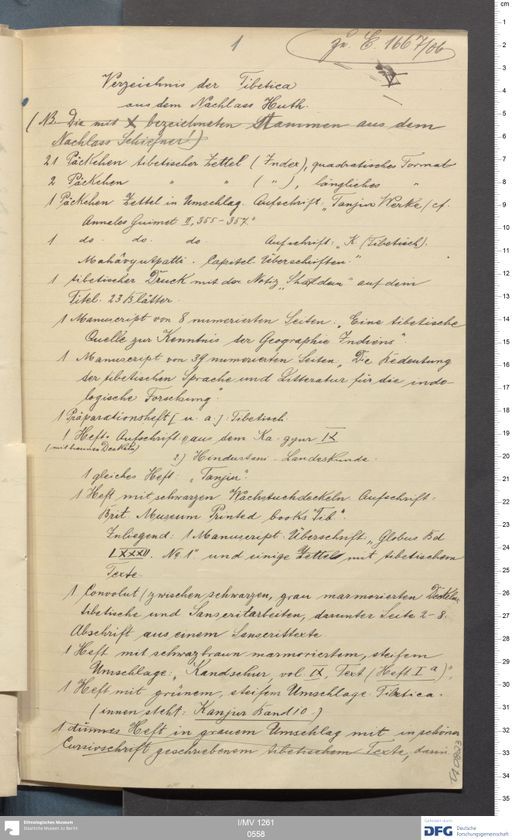 1
zu E. 1667/06
Verzeichnis der Tibetica
aus dem Nachlass Huth.
(NB. Die mit X bezeichneten stammen aus dem
Nachlass Schiefner!)
21 Päckchen tibetischer Zettel (Index), quadratisches Format
2 Päckchen " " ( " ), längliches "
1 Päckchen Zettel in Umschlag. Aufschrift: „Tanjur Werke (cf.
Annales Guimet II, 355-357."
1 do. do. do Aufschrift: „K (Tibetisch).
Mahâvyutpatti. Capitel Überschriften."
1 tibetischer Druck mit der Notiz „ " auf dem
Titel. 23 Blätter.
1 Manuscript von 8 numerierten Seiten: „Eine tibetische
Quelle zur Kenntnis der Geographie Indiens"
1 Manuscript von 39 numerierten Seiten „Die Bedeutung
der tibetischen Sprache und Litteratur für die indo-
logische Forschung.
1 Präparationsheft [u. a.]: Tibetisch
1 Heft. Aufschrift: aus dem Ka-gyur IX
(mit braunen Deckeln)
2) Hindustan - Landeskunde.
1 gleiches Heft: „Tanjur".
1 Heft mit schwarzen Wachstuchdeckeln Aufschrift:
Brit. Museum Printed books Tib"
Inliegend: 1 Manuscript: Überschrift „Globus Bd
LXXXII. No 1" und einige Zettel mit tibetischem
Texte.
1 Convolut (zwischen schwarzen, grau marmorierten Deckeln
tibetische und Sanscritarbeiten, darunter Seite 2-8.
Abschrift aus einem Sanscrittexte
1 Heft mit schwarzbraun marmoriertem, steifem
Umschlage: „Kandschur, vol. IX, Text (Heft I a)".
1 Heft mit grünem, steifem Umschlage: Tibetica.
(innen steht: Kanjur Band 10.)
1 dünnes Heft in grauem Umschlag mit in schöner
Cursivschrift geschriebenem tibetischem Texte, darin
cm
1
2
3
4
5
6
7
8
9
10
11
12
13
14
15
16
17
18
19
20
21
22
23
24
25
26
27
28
29
30
31
32
33
34
35
Ethnologisches Museum
Staatliche Museen zu Berlin
I/MV 1261
0558
Gefördert durch
DFG Deutsche
Forschungsgemeinschaft